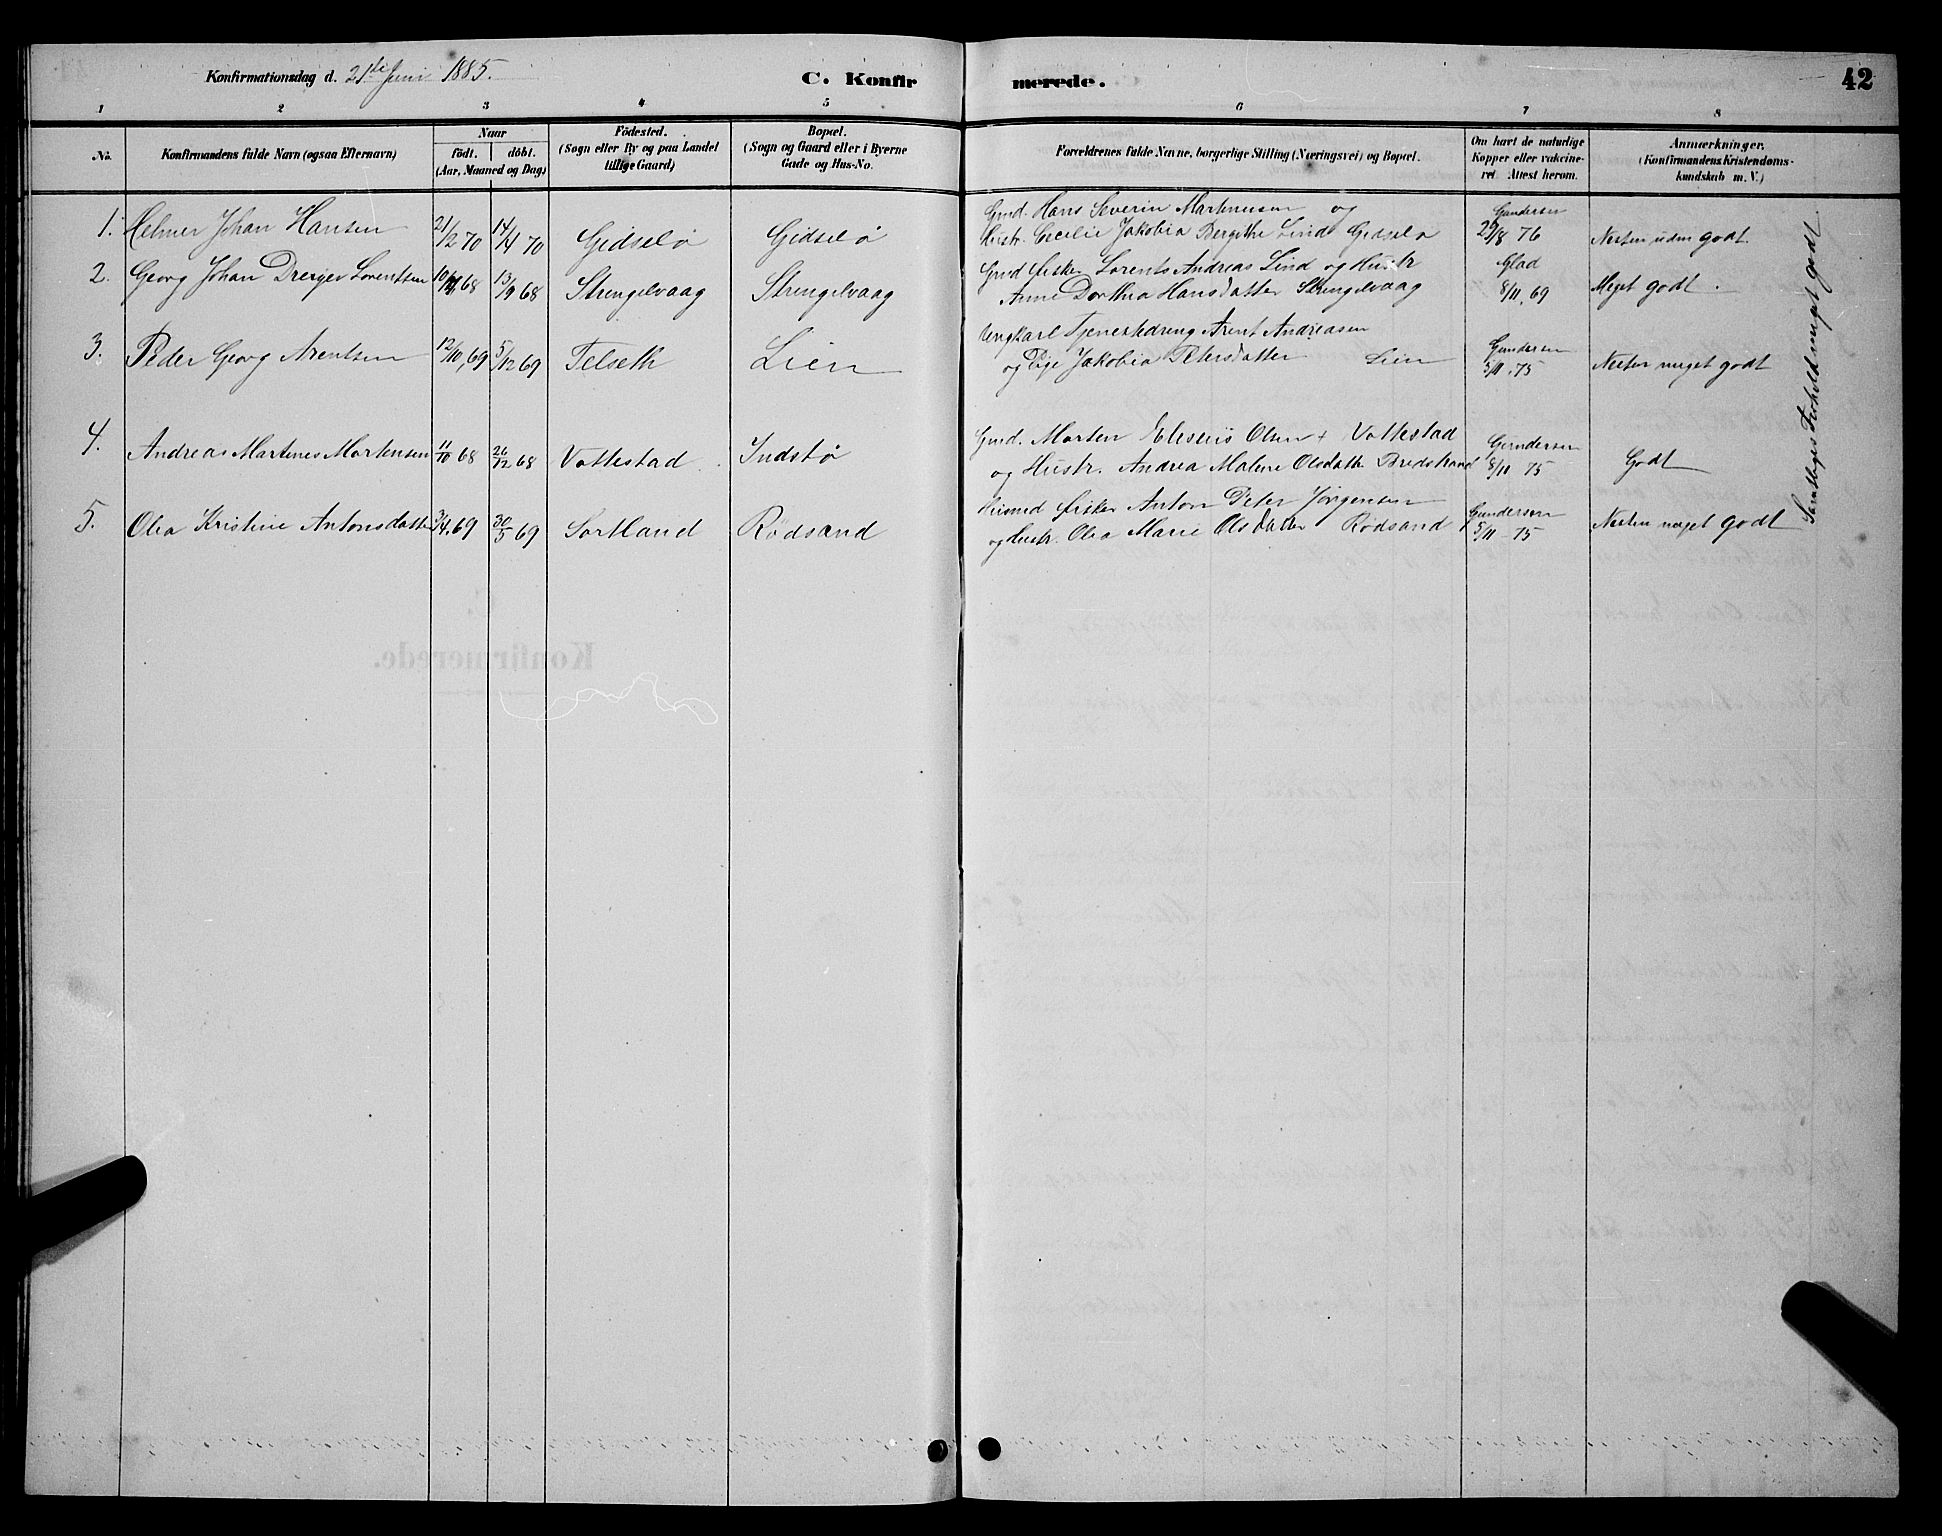 Konfirmationsdag d. 21de Juni 1885. C. Konfirmerede. 42
1 2 3 4 5 6 7 8
No. Konfirmandens fulde Navn (ogsaa Efternavn) Naar födt. döbt. (Aar, Maaned og Dag) Födested. (Sogn eller By og paa Landet tillige Gaard) Bopæl. (Sogn og Gaard eller i Byerne Gade og Hus-No. Forældrenes fulde Navne, borgerlige Stilling (Næringsvei) og Bopæl. Om havt de naturlige Kopper eller vakcineret. Attest herom. Anmærkninger. (Konfirmandens Kristendomskundskab m. V.)
1. Helmer Johan Hansen 21/2 70 14/4 70 Gidselø Gidselø Gmd. Hans Severin Martinusen og Gundersen
Hustr. Cecilie Jakobia Bergithe Lind Gidselø 29/8 76 Nesten uden godt.
2. Georg Johan Lorentsen 68 13/9 68 Strengelvaag Strengelvaag Gmd Fisker Lorents Andreas Lind og Hustr Glad
Anne Dorthea Hansdatter Strengelvaag 8/11, 69 Meget godt.
3. Peder Georg Arentsen 12/10, 69 5/12 69 Telseth Lien Ungkarl Tjenestedreng Arent Andreasen Gundersen
og Pige Jakobia Petersdatter Lien 5/11. 75 Nesten meget godt
4. Andreas Martines Mortensen 11/10 68 26/12 68 Vottestad Indstø Gmd. Morten Eliseus Olsen Vottestad Gundersen
og Hustr. Andrea Malene Olsdatter Bredstrand 8/11 75 Godt
5. Olea Kristine Antonsdatter 3/4 69 30/5 69 Sortland Rødsand Fisker Anton Peter Jörgensen Gundersen
og Hustr. Olea Marie Olsdatter Rödsand 5/11 - 75 Nesten meget godt
Samtliges Forhold meget godt.
Konfirmerede.